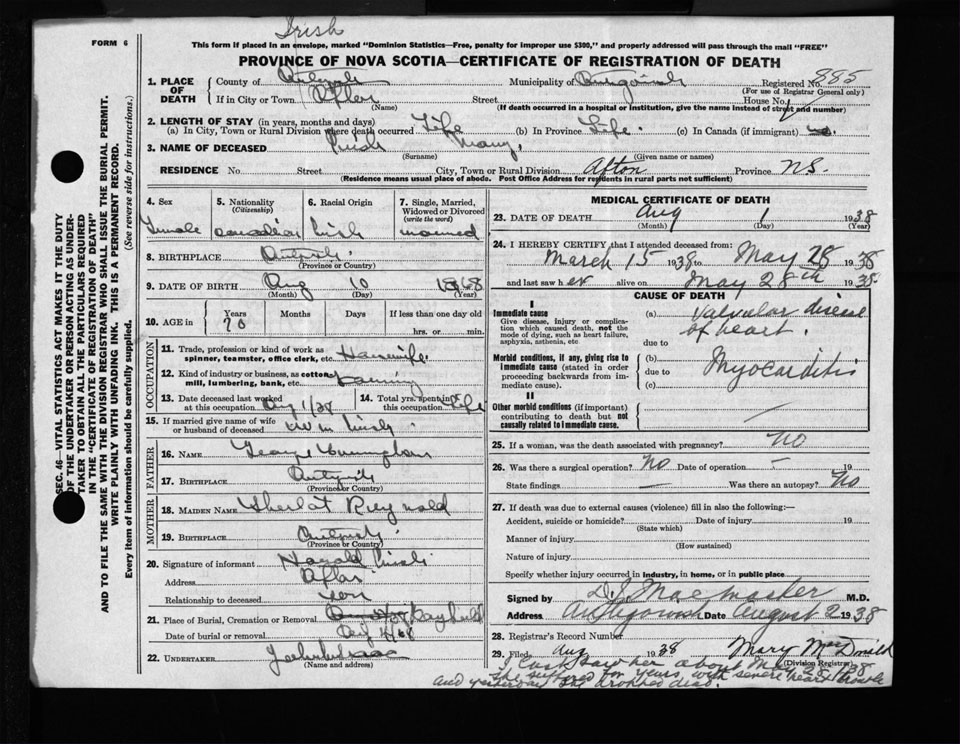 Irish
FORM 6
This form if placed in an envelope, marked "Dominion Statistics—Free, penalty for improper use $300," and properly addressed will pass through the mail "FREE"
PROVINCE OF NOVA SCOTIA—CERTIFICATE OF REGISTRATION OF DEATH
1. PLACE OF DEATH
County of
Municipality of
Registered No. 885
(For use of Registrar General only)
If in City or Town
(Name)
Street
House No.
(If death occurred in a hospital or institution, give the name instead of street and number)
2. LENGTH OF STAY (in years, months and days)
(a) In City, Town or Rural Division where death occurred Life (b) In Province Life. (c) In Canada (if immigrant)
3. NAME OF DECEASED Mary,
(Surname) (Given name or names)
RESIDENCE No. Street City, Town or Rural Division Afton Province NS.
(Residence means usual place of abode. Post Office Address for residents in rural parts not sufficient)
4. Sex
Female
5. Nationality
(Citizenship)
Canadian
6. Racial Origin
Irish
7. Single, Married, Widowed or Divorced
(write the word)
married
8. BIRTHPLACE
(Province or Country)
9. DATE OF BIRTH Aug 10 1868
(Month) (Day) (Year)
10. AGE in
Years
70
Months
Days
If less than one day old
hrs. or min.
OCCUPATION
11. Trade, profession or kind of work as spinner, teamster, office clerk, etc. Housewife.
12. Kind of industry or business, as cotton mill, lumbering, bank, etc. Farming
13. Date deceased last worked at this occupation Aug 1/38
14. Total yrs. spent in this occupation Life
15. If married give name of wife or husband of deceased Wm
FATHER
16. NAME George
17. BIRTHPLACE
(Province or Country)
MOTHER
18. MAIDEN NAME
19. BIRTHPLACE
(Province or Country)
20. Signature of informant Harold
Address
Relationship to deceased son
21. Place of Burial, Cremation or Removal Bayfield
Date of burial or removal
22. UNDERTAKER
(Name and address)
MEDICAL CERTIFICATE OF DEATH
23. DATE OF DEATH Aug 1 1938
(Month) (Day) (Year)
24. I HEREBY CERTIFY that I attended deceased from:
March 15 1938 to May 28 1938
and last saw her alive on May 28th 1938
CAUSE OF DEATH
I
Immediate cause
Give disease, injury or complication which caused death, not the mode of dying, such as heart failure, asphyxia, asthenia, etc
(a) Valvular disease
of heart.
due to
Morbid conditions, if any, giving rise to immediate cause (stated in order proceeding backwards from immediate cause).
(b)
due to Myocarditis
(c)
II
Other morbid conditions (if important) contributing to death but not causally related to immediate cause.
25. If a woman, was the death associated with pregnancy? no
26. Was there a surgical operation? No Date of operation 19
State findings — Was there an autopsy? No
27. If death was due to external causes (violence) fill in also the following:—
Accident, suicide or homicide? Date of injury 19
(State which)
Manner of injury
(How sustained)
Nature of injury
Specify whether injury occurred in industry, in home, or in public place
Signed by M.D.
Address Antigonish Date August 2 1938
28. Registrar's Record Number
29. Filed Aug 1938 Mary
(Division Registrar)
I last saw her about May 28/38
She suffered for years with severe heart trouble
and yesterday she dropped dead.
SEC. 46—VITAL STATISTICS ACT MAKES IT THE DUTY
OF THE UNDERTAKER OR PERSON ACTING AS UNDER-
TAKER TO OBTAIN ALL THE PARTICULARS REQUIRED
IN THE "CERTIFICATE OF REGISTRATION OF DEATH"
AND TO FILE THE SAME WITH THE DIVISION REGISTRAR WHO SHALL ISSUE THE BURIAL PERMIT.
WRITE PLAINLY WITH UNFADING INK. THIS IS A PERMANENT RECORD.
Every item of information should be carefully supplied. (See reverse side for instructions.)